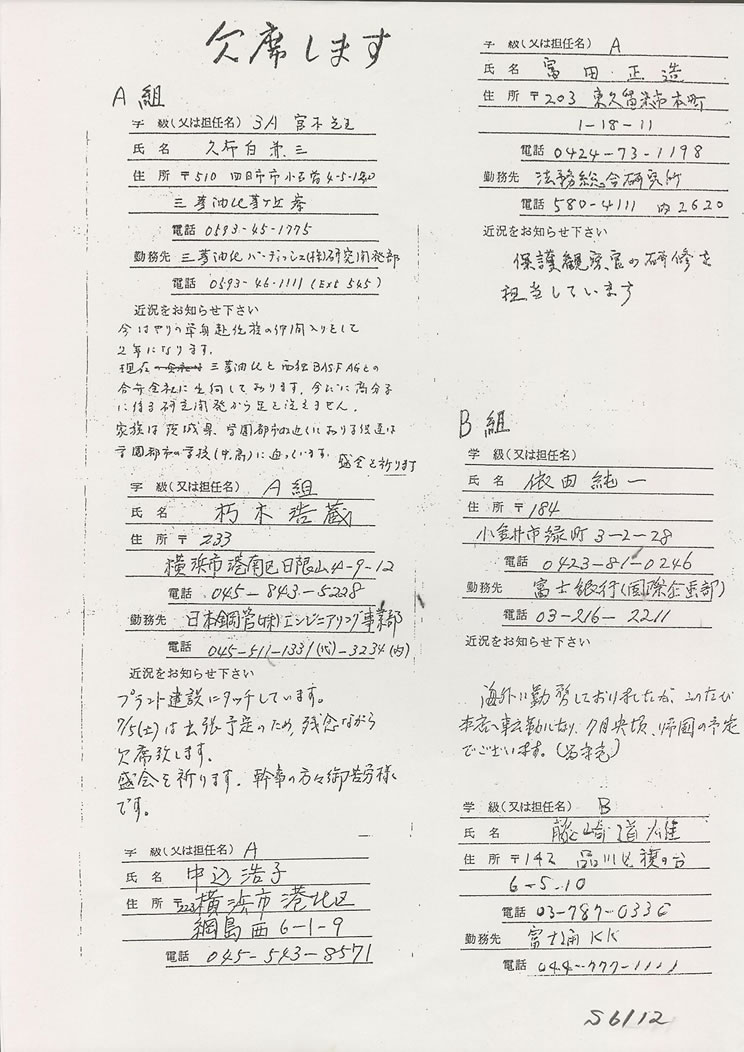 欠席します
A組
学級(又は担任名) 3A 宮本先生
氏名 久布白兼三
住所 〒510 四日市市小古曽4-5-1
三菱油化
電話 0593-45-1775
勤務先 三菱油化バーディッシェ(株)研究開発部
電話 0593-46-1111 (Ext 545)
近況をお知らせ下さい
今はやりの単身赴任族の仲間入りをして
2年になります。
現在 三菱油化と西独BASF AGとの
合弁会社に出向しております。今だに高分子
に係る研究開発から足を洗えません。
家族は茨城県、学園都市の近くにおり
学園都市の学校(中、高)に通っています。
盛会を祈ります
学級(又は担任名) A組
氏名 朽木浩蔵
住所 〒233
横浜市港南区日限山4-9-12
電話 045-843-5228
勤務先 日本鋼管(株)エンジニアリング事業部
電話 045-511-1331(代)-3234(内)
近況をお知らせ下さい
プラント建設にタッチしています。
7/5(土)は出張予定のため、残念ながら
欠席致します。
盛会を祈ります。幹事の方々御苦労様
です。
学級(又は担任名) A
氏名 中込浩子
住所 〒223 横浜市港北区
綱島西6-1-9
電話 045-543-8571
学級(又は担任名) A
氏名 富田正造
住所 〒203 東久留米市本町
1-18-11
電話 0424-73-1198
勤務先 法務総合研究所
電話 580-4111 内2620
近況をお知らせ下さい
保護観察官の研修を
担当しています
B組
学級(又は担任名)
氏名 依田純一
住所 〒184
小金井市緑町3-2-28
電話 0423-81-0246
勤務先 富士銀行(国際企画部)
電話 03-216-2211
近況をお知らせ下さい
海外に勤務しておりましたが、このたび
本店へ転勤になり、7月央頃、帰国の予定
でございます。(留守宅)
学級(又は担任名) B
氏名 藤崎道雄
住所 〒142 品川区旗の台
6-5-10
電話 03-787-0336
勤務先 富士通KK
電話 044-777-1111
S61/12